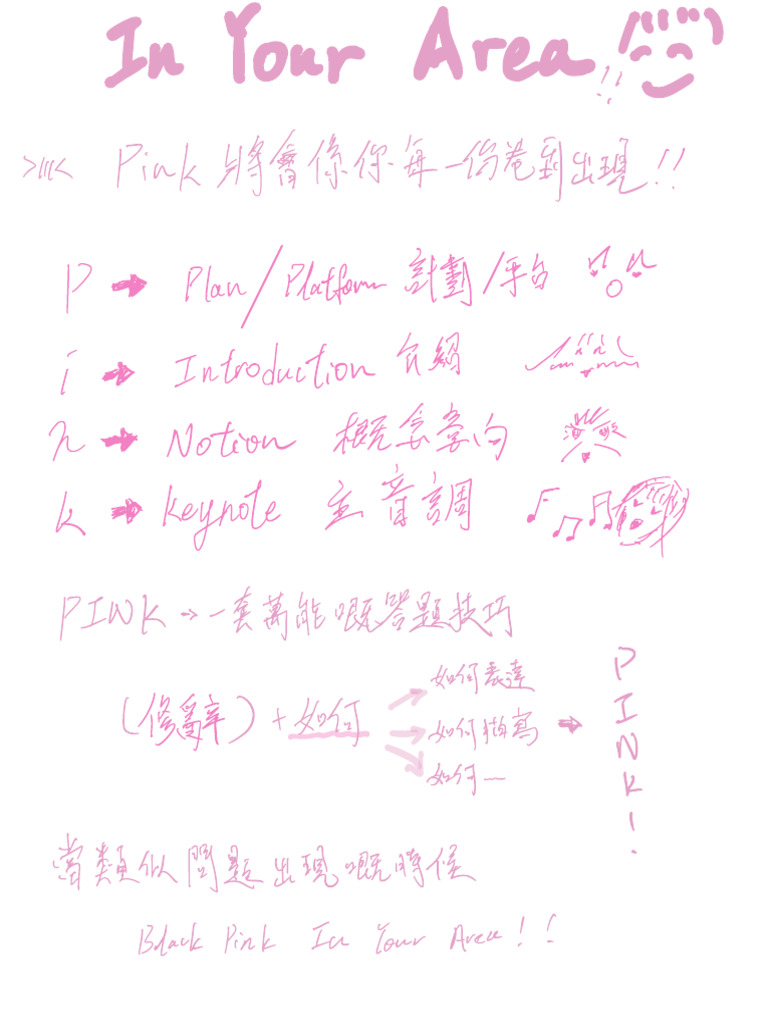 In Your Area !!
Pink 將會係你每一份卷到出現!!
P → Plan/Platform 計劃/平台
i → Introduction 介紹
n → Notion 概念意向
k → keynote 主音調
PINK → 一套萬能嘅答題技巧
(修辭) + 如何
如何表達
如何描寫
如何一
PINK!
當類似問題出現嘅時候
Black Pink In Your Area!!